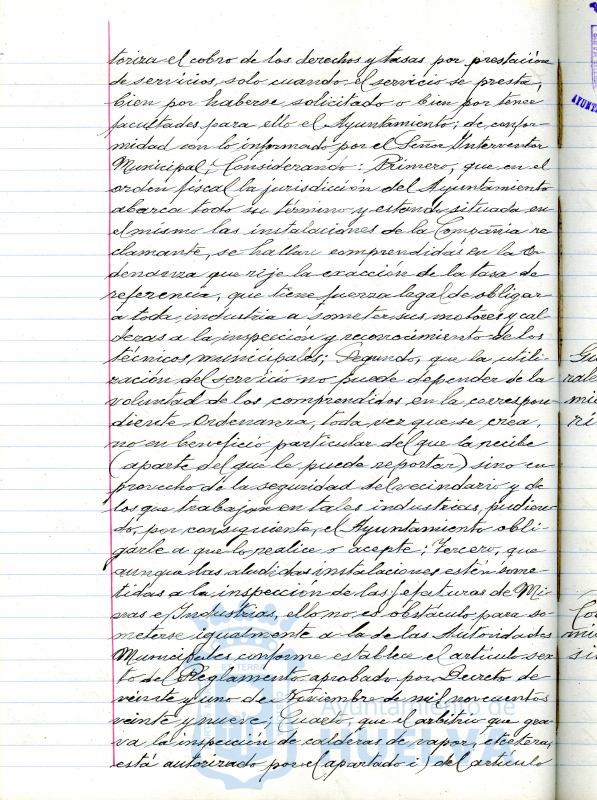 toriza el cobro de los derechos y tasas por prestación
de servicios, solo cuando el servicio se presta,
bien por haberse solicitado o bien por tener
facultades para ello el Ayuntamiento; de confor-
midad con lo informado por el Señor Interventor
Municipal; Considerando: Primero, que en el
orden fiscal la jurisdición del Ayuntamiento
abarca todo su término y estando situada en
el mismo las instalaciones de la Compañia re-
clamante, se hallan comprendidas en la Or-
denanza que rije la exacción de la tasa de
referencia, que tiene fuerza legal de obligar
a toda industria a someter sus motores y cal-
deras a la inspección y reconocimiento de los
técnicos municipales; Segundo, que la utili-
zación del servicio no puede depender de la
voluntad de los comprendidos en la correspon-
diente Ordenanza, toda vez que se crea,
no en beneficio particular del que la recibe
(aparte del que le puede reportar) sino en
provecho de la seguridad del vecindario y de
los que trabajan en tales industrias, pudien-
do, por consiguiente, el Ayuntamiento obli-
garle a que lo realice o acepte; Tercero, que
aunque las aludidas instalaciones estén some-
tidas a la inspección de las Jefaturas de Mi-
nas e Industrias, ello no es obstáculo para so-
meterse igualmente a la de las Autoridades
Municipales conforme establece el artículo sex-
to del Reglamento aprobado por Decreto de
veinte y uno de Noviembre de mil novecientos
veinte y nueve; Cuarto, que el arbitrio que gra-
va la inspección de calderas de vapor, etcétera,
está autorizado por el apartado i) del artículo
Ayuntamiento de
HUELVA